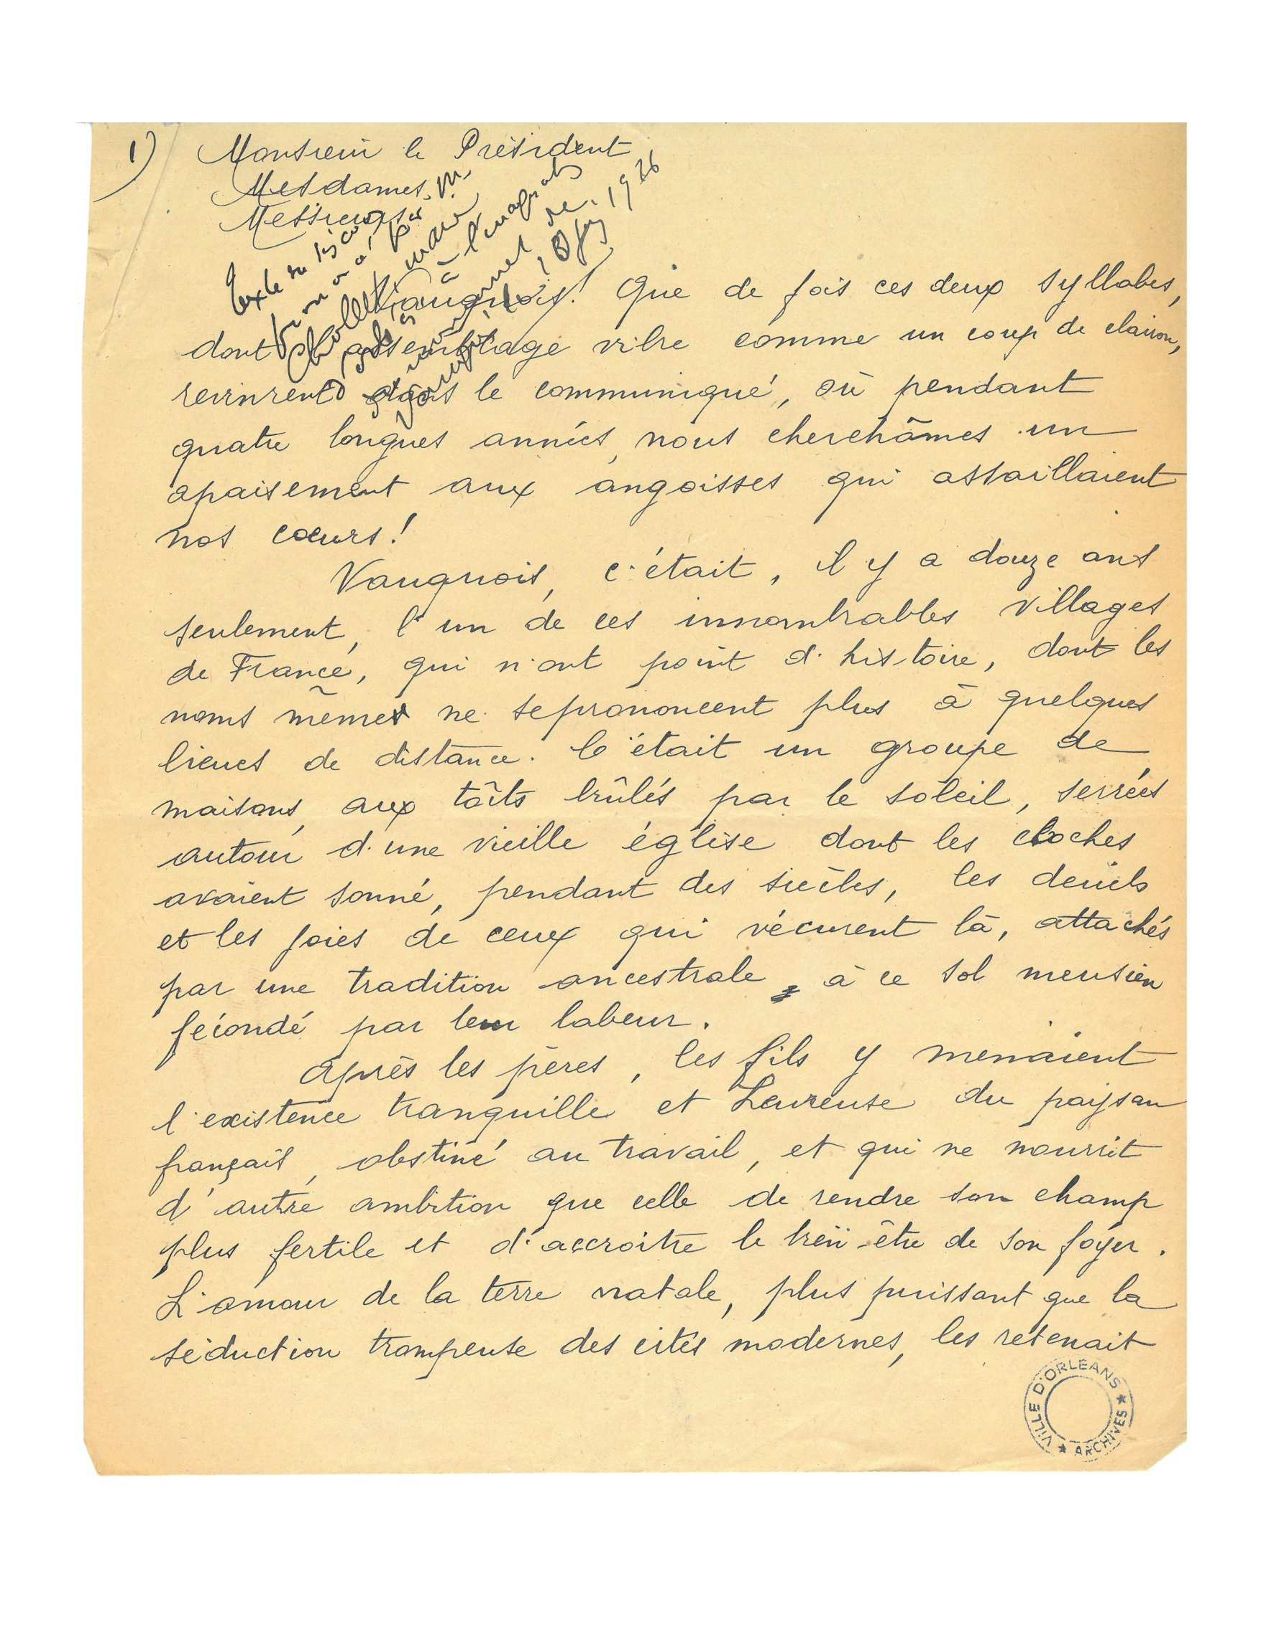 1)
Monsieur le Président
Mesdames,
Messieurs
Texte du discours
prononcé par M.
maire
à l'inauguration
1926
Vauquois! Que de fois ces deux syllabes,
dont l'assemblage vibre comme un coup de clairon,
revinrent dans le communiqué, où pendant
quatre longues années, nous cherchâmes un
apaisement aux angoisses qui assaillaient
nos cœurs!
Vauquois, c'était, il y a douze ans
seulement, l'un de ces innombrables villages
de France, qui n'ont point d'histoire, dont les
noms mêmes ne se prononcent plus à quelques
lieues de distance. C'était un groupe de
maisons aux toits brûlés par le soleil, serrées
autour d'une vieille église dont les cloches
avaient sonné, pendant des siècles, les deuils
et les joies de ceux qui vécurent là, attachés
par une tradition ancestrale, à ce sol meusien
fécondé par leur labeur.
Après les pères, les fils y menaient
l'existence tranquille et heureuse du paysan
français, obstiné au travail, et qui ne nourrit
d'autre ambition que celle de rendre son champ
plus fertile et d'accroître le bien-être de son foyer.
L'amour de la terre natale, plus puissant que la
séduction trompeuse des cités modernes, les retenait
VILLE D'ORLEANS ★ ARCHIVES ★